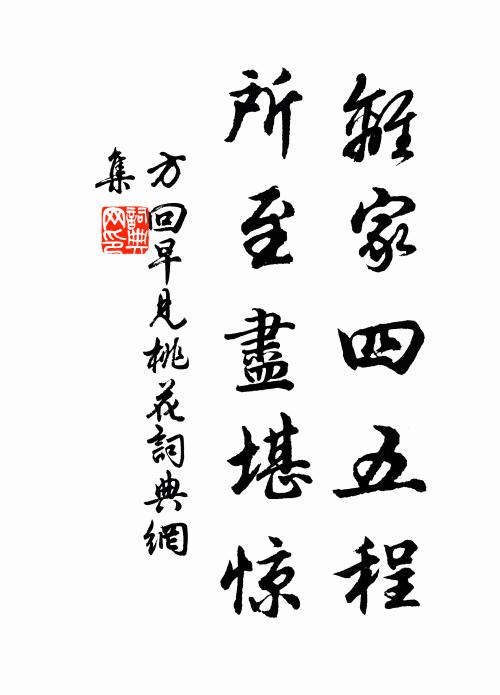 離家四五程
所至盡堪惊
方回早見桃花詞典網
集
詞典
网印